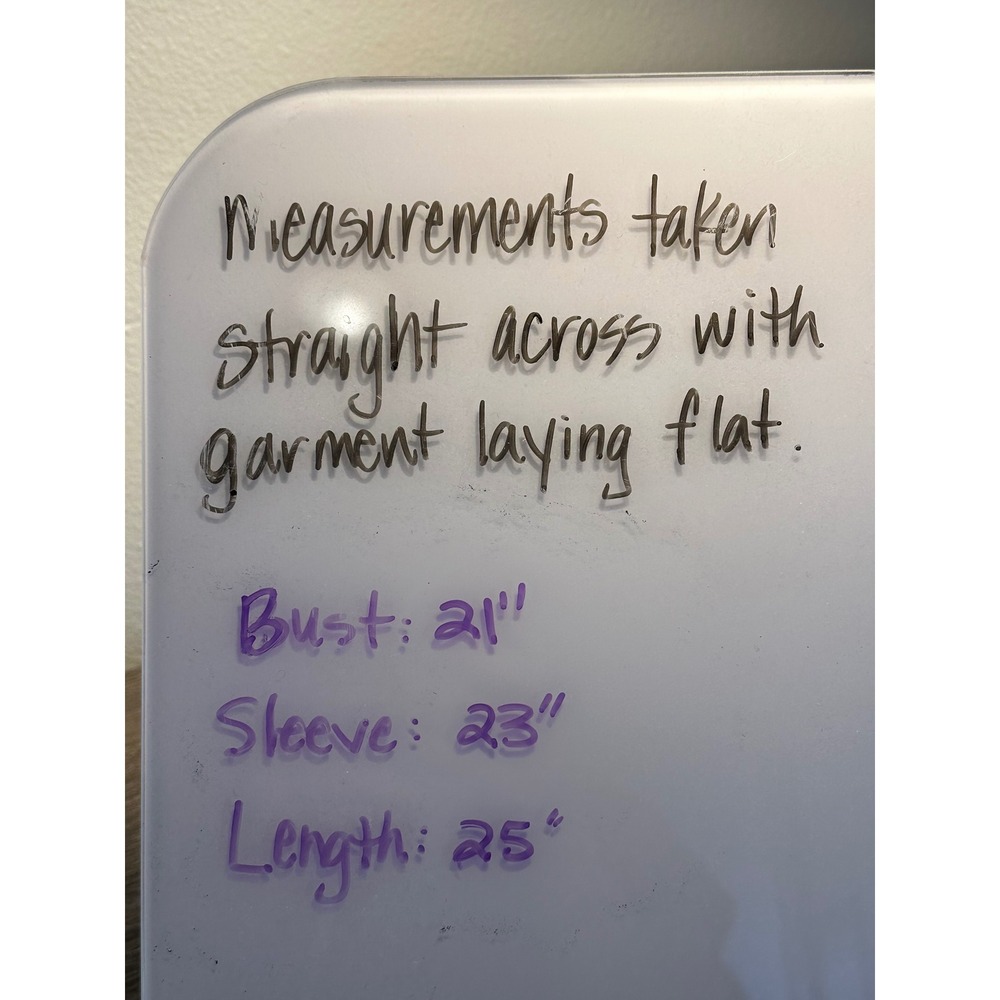 Measurements taken
straight across with
garment laying flat.
Bust: 21"
Sleeve: 23"
Length: 25"